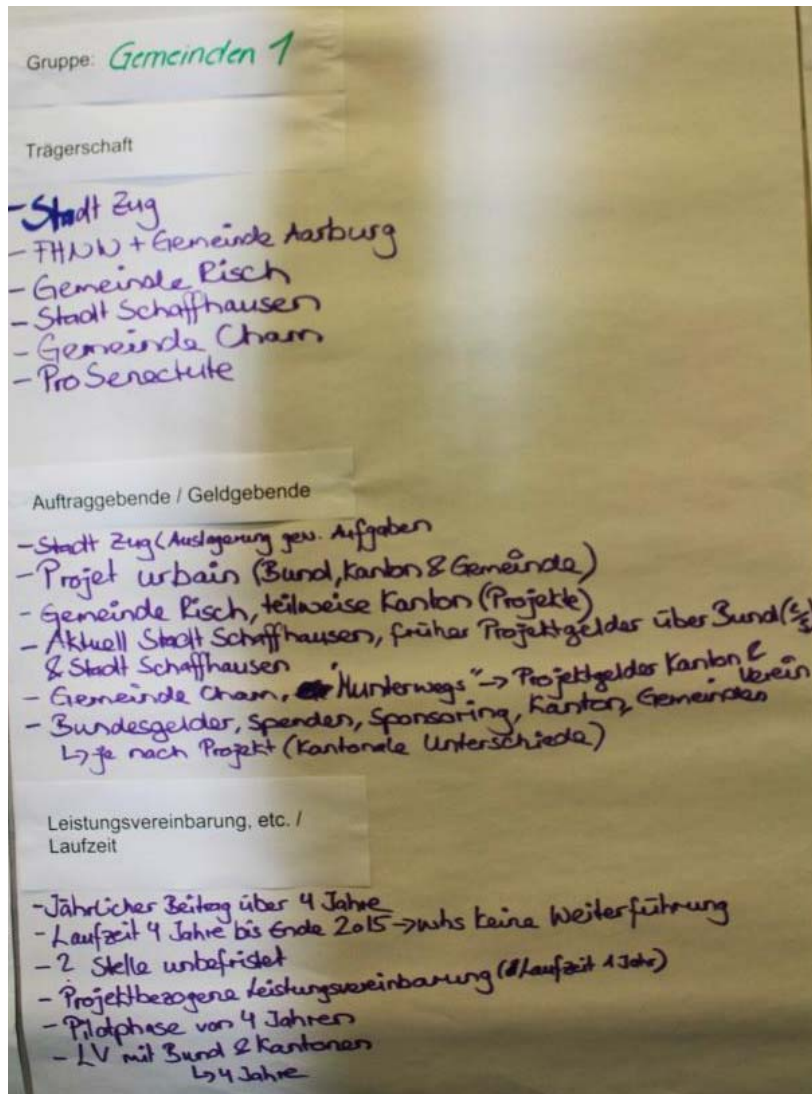 Gruppe: Gemeinden 1
Trägerschaft
- Stadt Zug
- FHNW + Gemeinde Aarburg
- Gemeinde Risch
- Stadt Schaffhausen
- Gemeinde Cham
- Pro Senectute
Auftraggebende / Geldgebende
- Stadt Zug (Auslagerung gew. Aufgaben
- Projet urbain (Bund, Kanton & Gemeinde)
- Gemeinde Risch, teilweise Kanton (Projekte)
- Aktuell Stadt Schaffhausen, früher Projektgelder über Bund
& Stadt Schaffhausen
- Gemeinde Cham, "Hunterwegs" -> Projektgelder Kanton & Verein
- Bundesgelder, Spenden, Sponsoring, Kanton, Gemeinden
↳ je nach Projekt (Kantonale Unterschiede)
Leistungsvereinbarung, etc. /
Laufzeit
- Jährlicher Beitrag über 4 Jahre
- Laufzeit 4 Jahre bis Ende 2015 -> whs keine Weiterführung
- ? Stelle unbefristet
- Projektbezogene Leistungsvereinbarung (Laufzeit 1 Jahr)
- Pilotphase von 4 Jahren
- LV mit Bund & Kantonen
↳ 4 Jahre